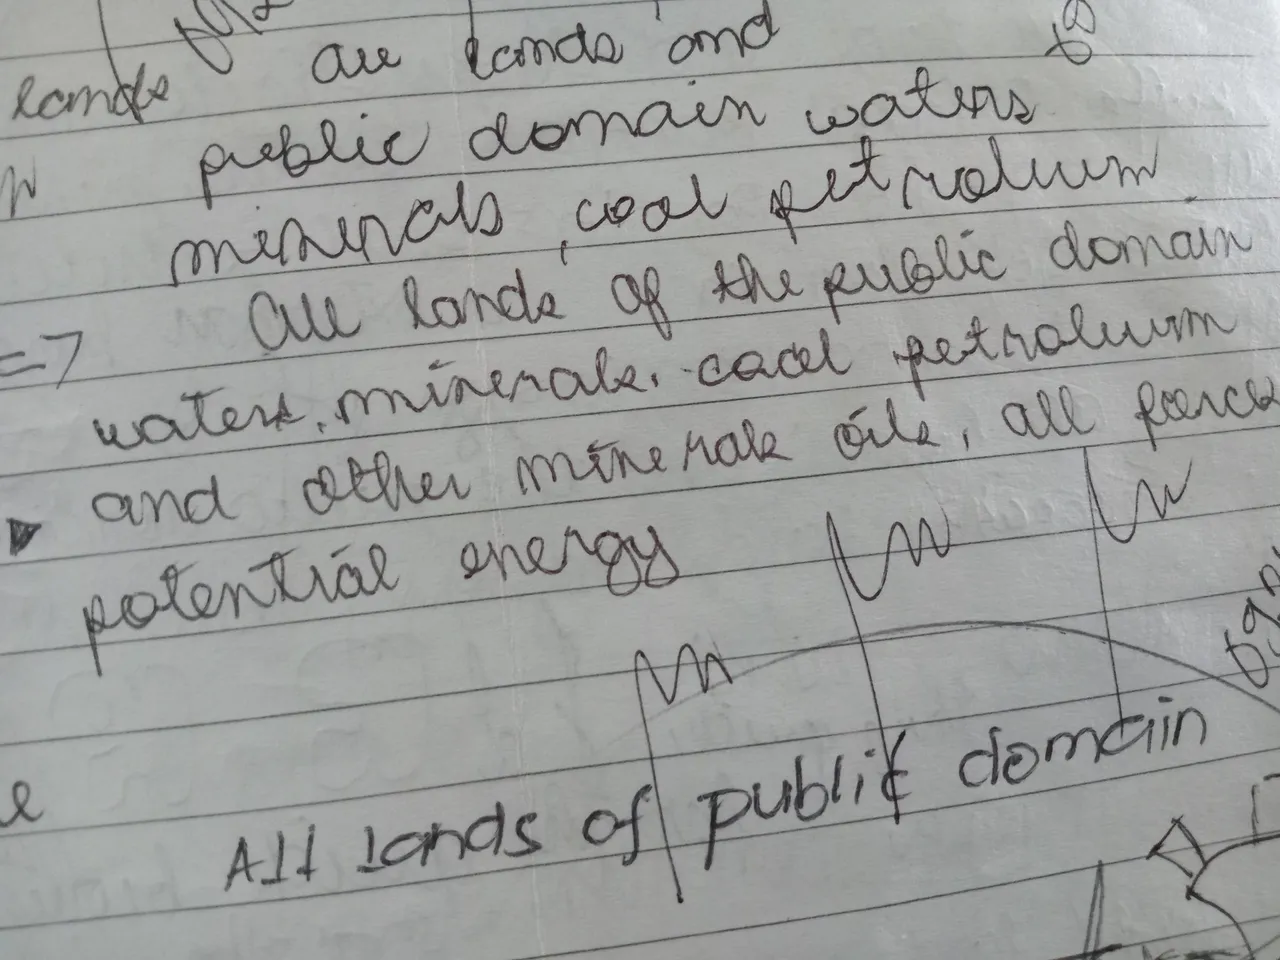 lands all lands and
public domain waters
minerals, coal petroluum
=> all lands of the public domain
waters, minerals. coal petroluum
and other minerals oils, all forces
potential energy
All lands of public domain